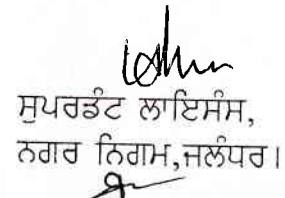 ਸੁਪਰਡੰਟ ਲਾਇਸੰਸ,
ਨਗਰ ਨਿਗਮ,ਜਲੰਧਰ।